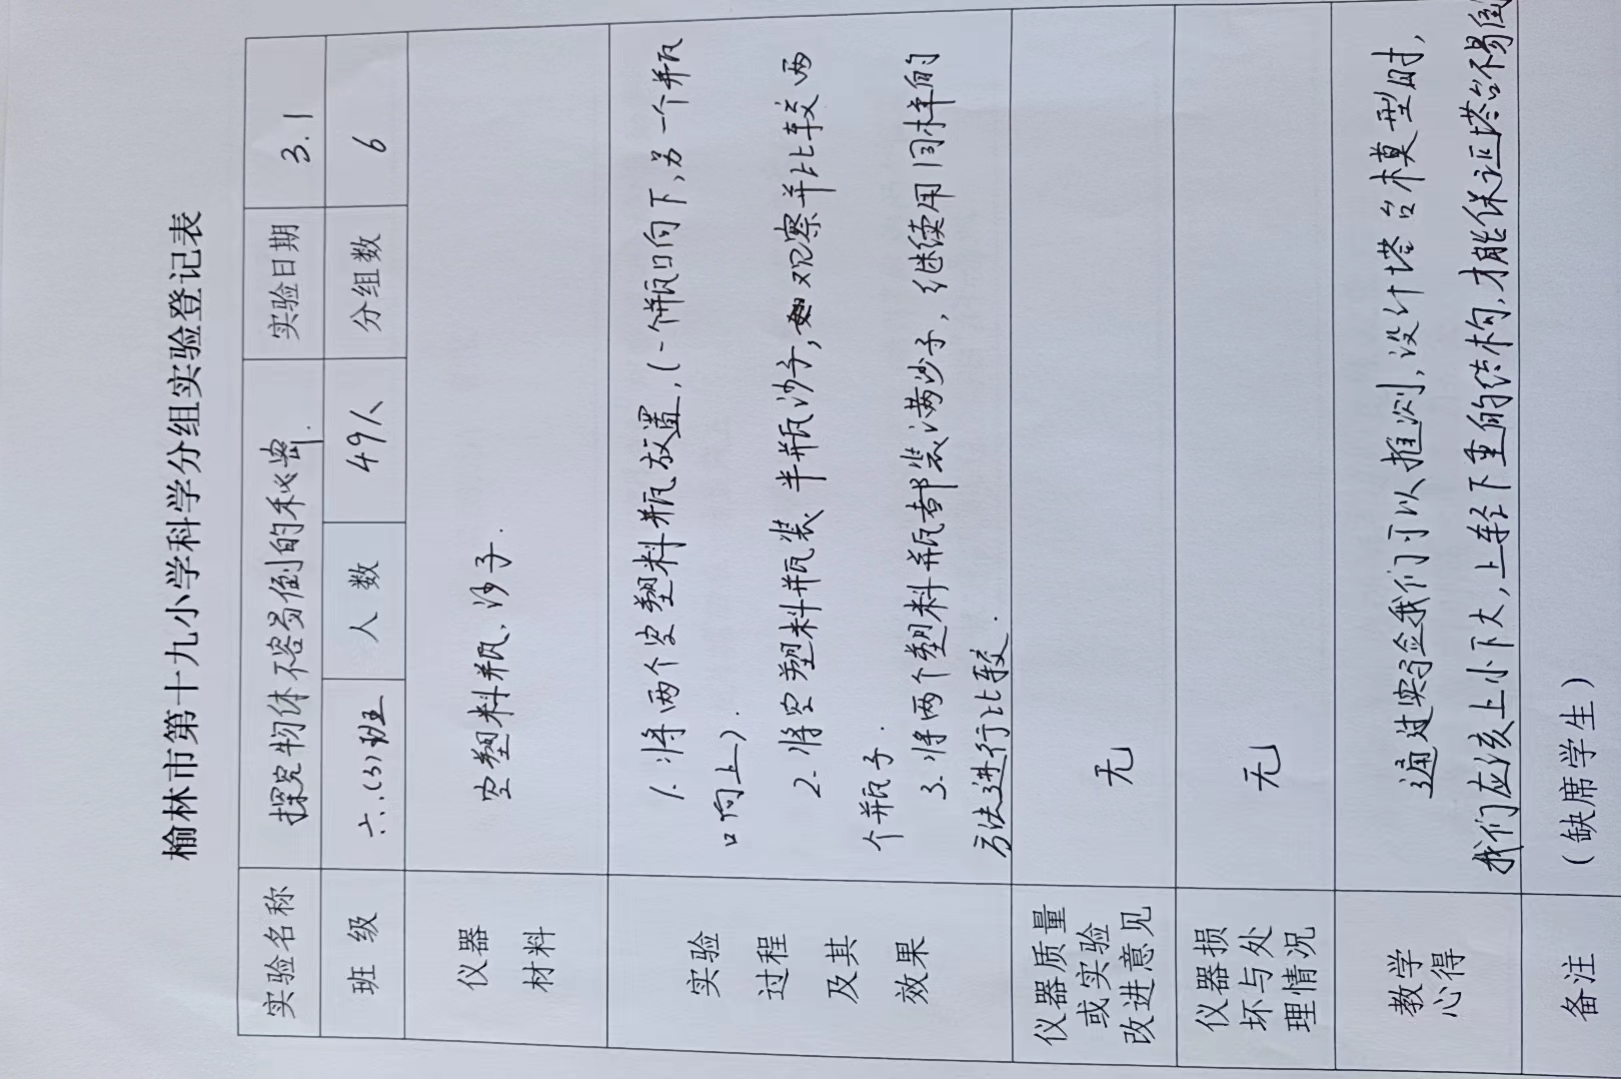 榆林市第十九小学科学分组实验登记表
实验名称 探究物体不容易倒的秘密. 实验日期 3.1
班 级 六.(3)班 人 数 49人 分组数 6
仪器
材料
空塑料瓶、沙子.
实验
过程
及其
效果
1. 将两个空塑料瓶放置,(一个瓶口向下,另一个瓶
口向上).
2. 将空塑料瓶装半瓶沙子, 观察并比较两
个瓶子.
3. 将两个塑料瓶都装满沙子, 继续用同样的
方法进行比较.
仪器质量
或实验
改进意见
无
仪器损
坏与处
理情况
无
教学
心得
通过实验我们可以推测,设计塔台模型时,
我们应该上小下大,上轻下重的结构,才能保证塔台不易倒
备注
(缺席学生)